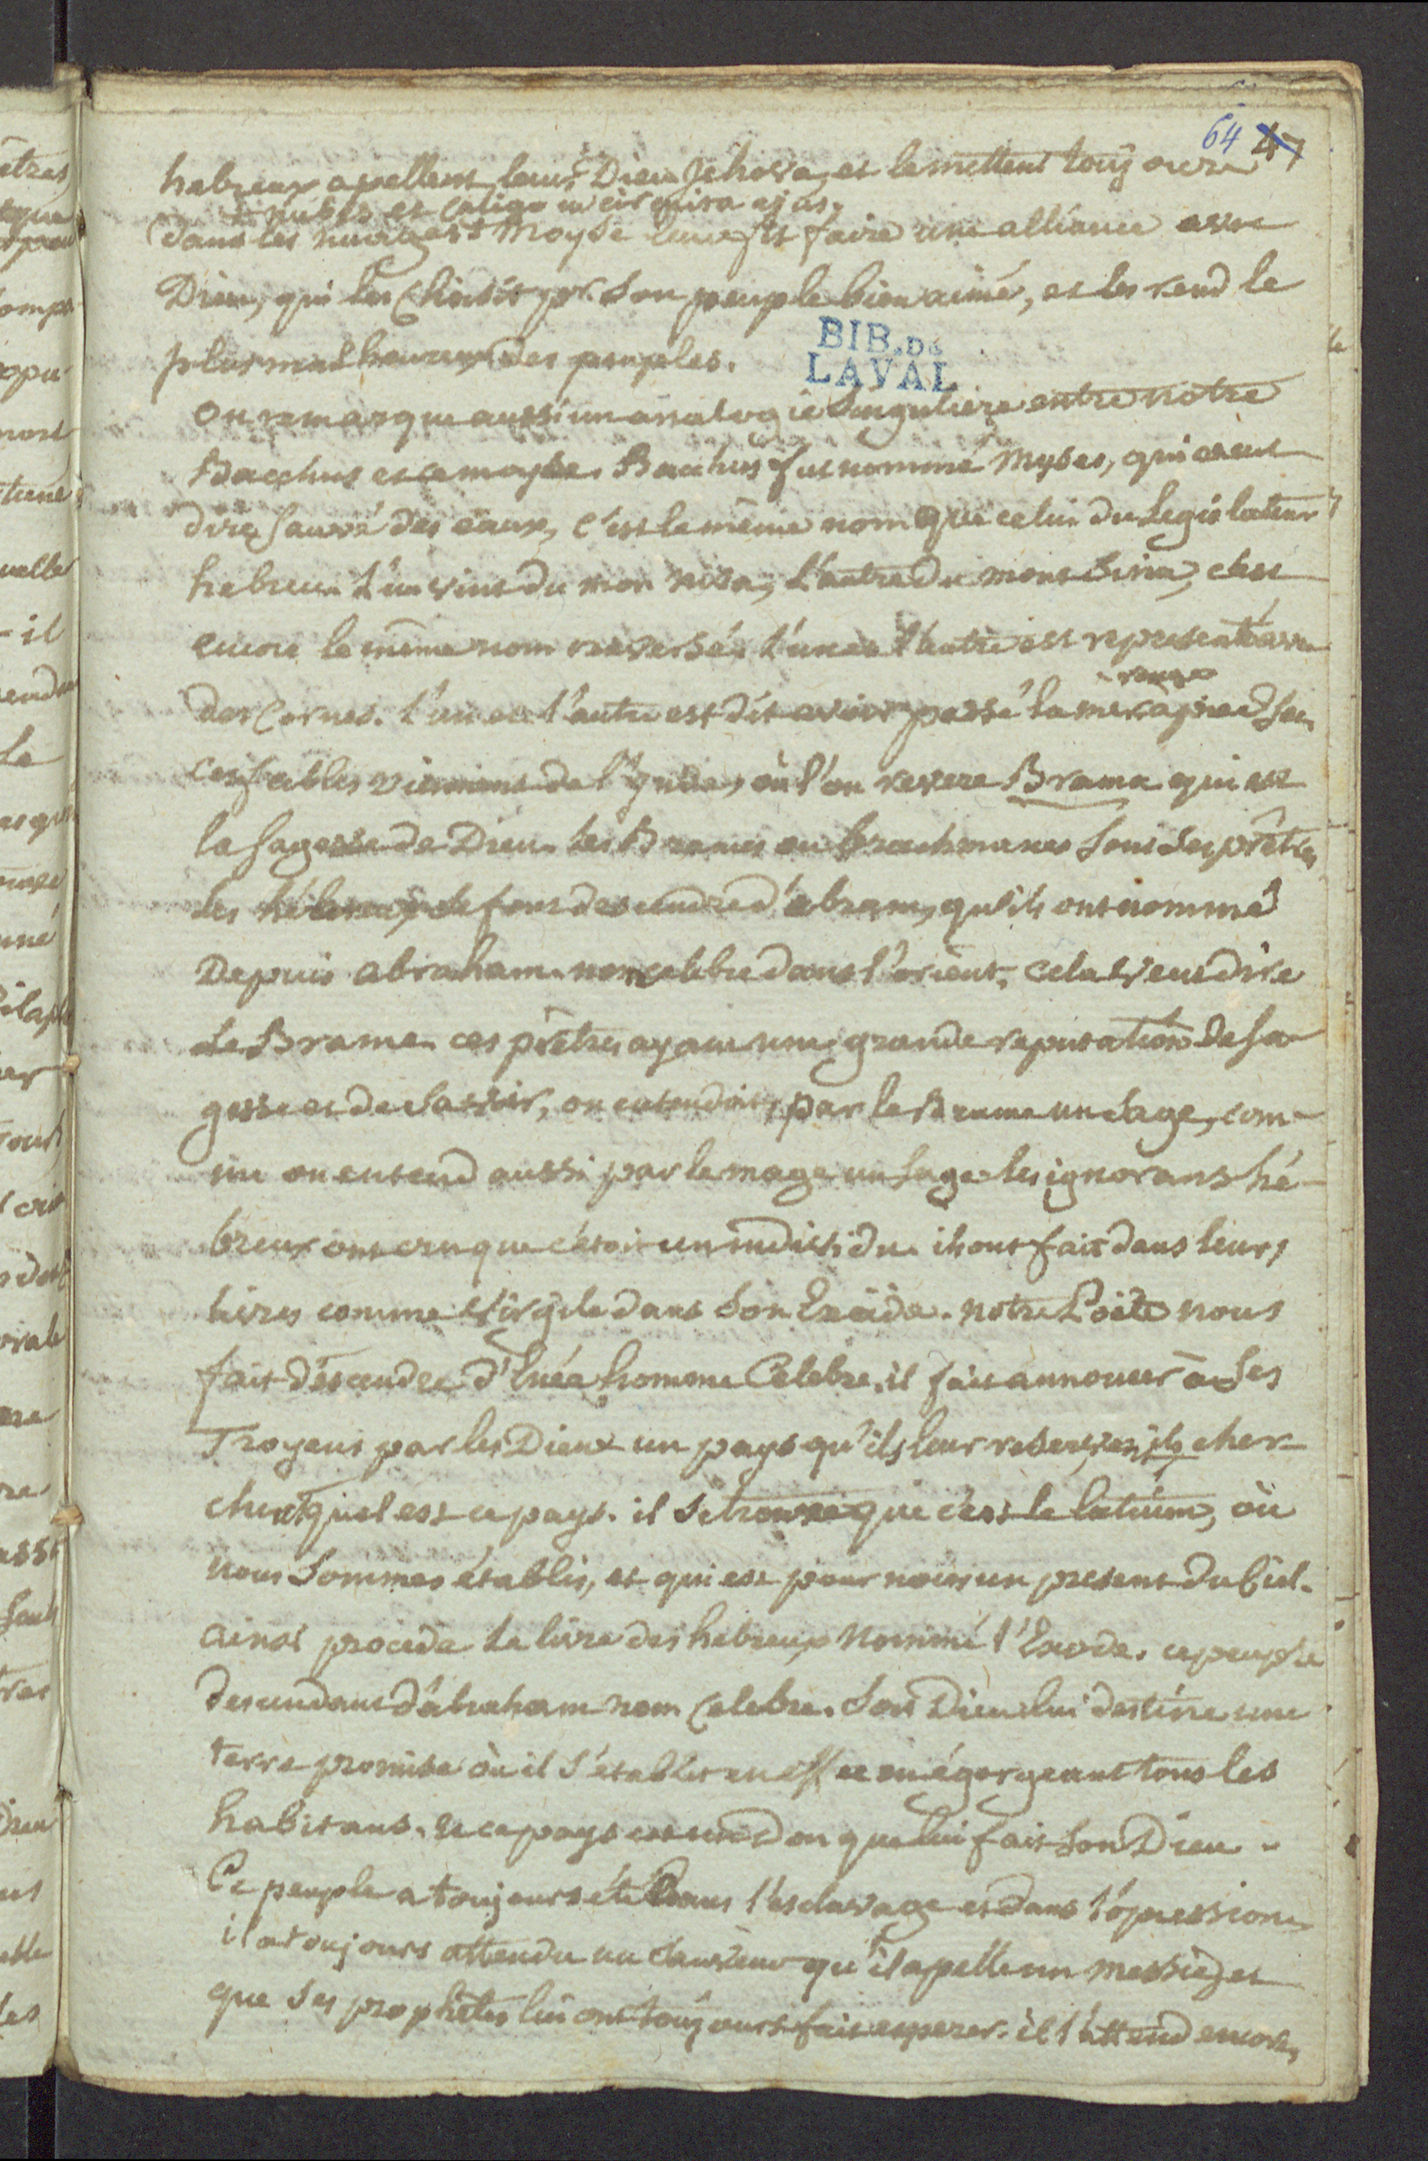 64 47
hebreux apellent leur Dieu Jehova, et le mettent toujours
+ nubes et caligo in circuitu ejus.
dans les nuages+ Moyse leur fit faire une alliance avec
Dieu, qui les choisit pr. son peuple bien aimé, et les rend le
plus malheureux des peuples.
BIB. DE
LAVAL
On remarque aussi un analogie singuliere entre notre
Bacchus et ce moyse. Bacchus fut nommé Myses, qui veut
dire sauvé des eaux, c'est le même nom que celui du Legislateur
hebreu. L'un vint du mon nisa, L'autre du mont Sina, c'est
encore le même nom renversé. L'un et l'autre est representé avec
des cornes. l'un et l'autre est dit avoir passé la mer rouge a pied sec.
ces fables viennent de l'Ynde, où l'on revere Brama qui est
la sagesse de Dieu. Les Brames ou brachmanes sont ses prêtres
Les hébreux se font descendre d'abram, qu'ils ont nommé
Depuis abraham. nom celebre dans l'orient, cela veut dire
Le Brame. ces prêtres ayant une grande reputation de sa-
gesse et de savoir, on entendoit par le Brame un sage, com-
me on entend aussi par le mage un sage. les ignorans hé-
breux ont cru que c'étoit un individu. ils ont fait dans leurs
livres comme Virgile dans son Enéide. notre Poëte nous
fait descendre d'Enée homme Celebre. il fait annoncer à ses
Troyens par les Dieux un pays qu'ils leur reservent, ils cher-
chent quel est ce pays. il se trouve que c'est le latium, où
nous sommes établis, et qui est pour nous un present du Ciel.
ainsi procede Le livre des hebreux nommé l'Exode. ce peuple
descendant d'abraham nom celebre. son Dieu lui destine une
terre promise où il s'établit en égorgeant tous les
habitans. et ce pays est un don que lui fait son Dieu.
Ce peuple a toujours été dans l'esclavage et dans l'opression
il a toujours attendu un sauveur qu'il apelle un messie, et
que ses prophêtes lui ont toujours fait esperer. il l'attend encore,